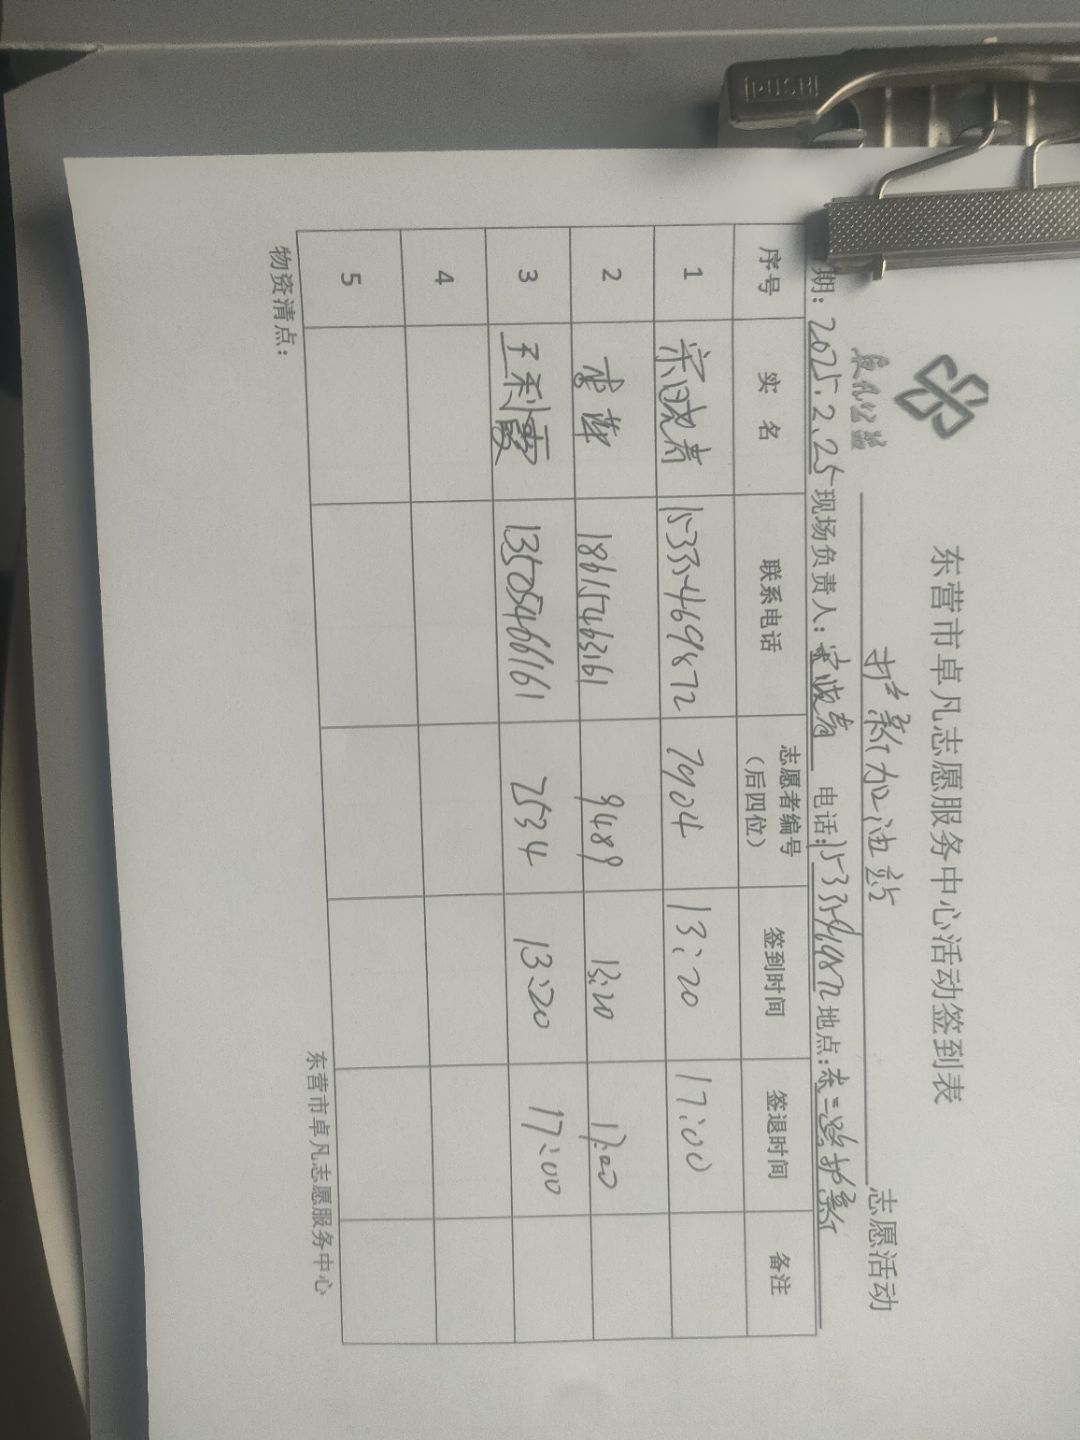 东营市卓凡志愿服务中心活动签到表
卓凡公益 护新加油站 志愿活动
期：2025.2.25 现场负责人：宋晓青 电话：15335469872 地点：东二路护新
序号 实名 联系电话 志愿者编号（后四位） 签到时间 签退时间 备注
1 宋晓青 15335469872 7904 13:20 17:00
2 李苹 18615463161 9489 13:20 17:00
3 王利霞 13505466161 7534 13:20 17:00
4
5
物资清点：
东营市卓凡志愿服务中心